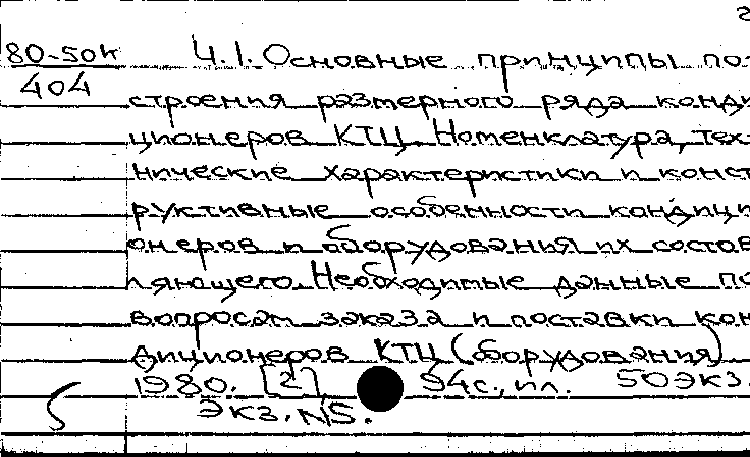 80-50к Ч.1. Основные принципы по-
404
строения размерного ряда конди
ционеров КТЦ. Номенклатура, тех-
нические характеристики и конст
руктивные особенности кондици
онеров и оборудования их состав
ляющего. Необходимые данные по
вопросам заказа и поставки кон
диционеров КТЦ (оборудования)
1980. [2] 94с., ил. 50экз.
Экз. №5.